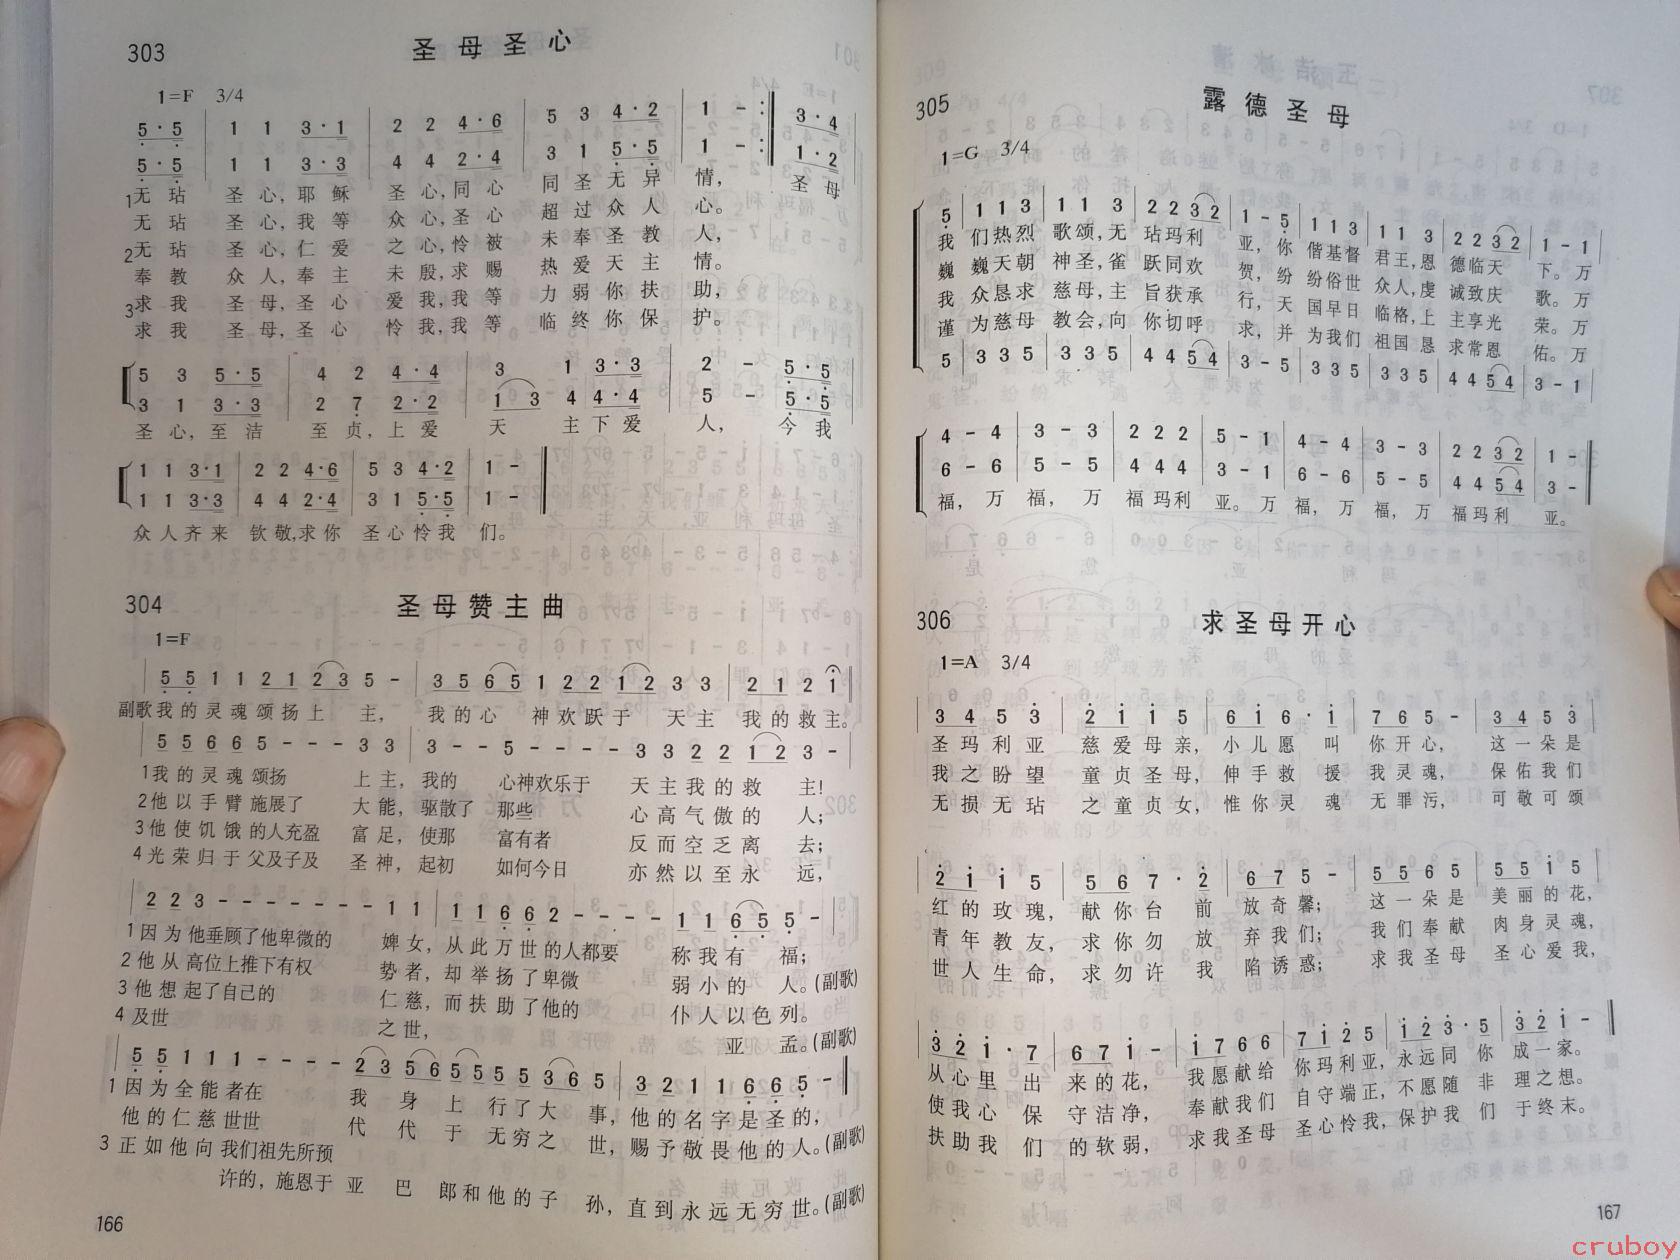 303 圣母圣心
1=F 3/4
5·5 | 1 1 3·1 | 2 2 4·6 | 5 3 4·2 | 1 - :| 3·4
5·5 | 1 1 3·3 | 4 4 2·4 | 3 1 5·5 | 1 - :| 1·2
1 无玷 圣心,耶稣 圣心,同心 同圣无异 情, 圣母
无玷 圣心,我等 众心,圣心 超过众人 心。
2 无玷 圣心,仁爱 之心,怜被 未奉圣教 人,
奉教 众人,奉主 未殷,求赐 热爱天主 情。
3 求我 圣母,圣心 爱我,我等 力弱你扶 助,
求我 圣母,圣心 怜我,我等 临终你保 护。
5 3 5·5 | 4 2 4·4 | 3 1 3·3 | 2 - 5·5
3 1 3·3 | 2 7 2·2 | 1 3 4 4·4 | 5 - 5·5
圣心,至洁 至贞,上爱 天 主下爱 人, 今我
1 1 3·1 | 2 2 4·6 | 5 3 4·2 | 1 -
1 1 3·3 | 4 4 2·4 | 3 1 5·5 | 1 -
众人齐来 钦敬,求你 圣心怜我 们。
304 圣母赞主曲
1=F
5 5 1 1 2 1 2 3 5 - | 3 5 6 5 1 2 2 1 2 3 3 | 2 1 2 1
副歌 我的灵魂颂扬上 主, 我的心 神欢跃于 天主 我的救主。
5 5 6 6 5 - - - 3 3 | 3 - - 5 - - - - 3 3 2 2 1 2 3 -
1我的灵魂颂扬 上主,我的 心神欢乐于 天主我的救 主!
2他以手臂施展了 大能,驱散了 那些 心高气傲的 人;
3他使饥饿的人充盈 富足,使那 富有者 反而空乏离 去;
4光荣归于父及子及 圣神,起初 如何今日 亦然以至永 远,
2 2 3 - - - - - - - 1 1 | 1 1 6 6 2 - - - - 1 1 6 5 5 -
1因为他垂顾了他卑微的 婢女,从此万世的人都要 称我有 福;
2他从高位上推下有权 势者,却举扬了卑微 弱小的 人。(副歌)
3他想起了自己的 仁慈,而扶助了他的 仆人以色列。
4及世 之世, 亚 孟。(副歌)
5 5 1 1 1 - - - - 2 3 5 6 5 5 5 5 3 6 5 | 3 2 1 1 6 6 5 -
1因为全能者在 我身上行了大 事,他的名字是圣的,
他的仁慈世世 代代于无穷之 世,赐予敬畏他的人。(副歌)
3正如他向我们祖先所预
许的,施恩于亚巴郎和他的子 孙,直到永远无穷世。(副歌)
166
305 露德圣母
1=G 3/4
5 | 1 1 3 | 1 1 3 | 2 2 3 2 | 1 - 5 | 1 1 3 | 1 1 3 | 2 2 3 2 | 1 - 1
我 们热烈 歌颂,无 玷玛利 亚,你 偕基督 君王,恩 德临天 下。万
巍 巍天朝 神圣,雀 跃同欢 贺,纷 纷俗世 众人,虔 诚致庆 歌。万
我 众恳求 慈母,主 旨获承 行,天 国早日 临格,上 主享光 荣。万
谨 为慈母 教会,向 你切呼 求,并 为我们 祖国 恳 求常恩 佑。万
5 | 3 3 5 | 3 3 5 | 4 4 5 4 | 3 - 5 | 3 3 5 | 3 3 5 | 4 4 5 4 | 3 - 1
4 - 4 | 3 - 3 | 2 2 2 | 5 - 1 | 4 - 4 | 3 - 3 | 2 2 3 2 | 1 -
6 - 6 | 5 - 5 | 4 4 4 | 3 - 1 | 6 - 6 | 5 - 5 | 4 4 5 4 | 3 -
福, 万 福, 万 福玛利 亚。万 福, 万 福, 万 福玛利 亚。
306 求圣母开心
1=A 3/4
3 4 5 3 | 2 1 1 5 | 6 1 6 · 1 | 7 6 5 - | 3 4 5 3
圣玛利亚 慈爱母亲,小儿愿 叫 你开心, 这一朵是
我之盼望 童贞圣母,伸手救 援 我灵魂, 保佑我们
无损无玷 之童贞女,惟你灵 魂 无罪污, 可敬可颂
2 1 1 5 | 5 6 7 · 2 | 6 7 5 - | 5 5 6 5 | 5 5 1 5
红的玫瑰,献你台 前 放奇馨; 这一朵是 美丽的花,
青年教友,求你勿 放 弃我们; 我们奉献 肉身灵魂,
世人生命,求勿许 我 陷诱惑; 求我圣母 圣心爱我,
3 2 1 · 7 | 6 7 1 - | 1 7 6 6 | 7 1 2 5 | 1 2 3 · 5 | 3 2 1 -
从心里 出 来的花, 我愿献给 你玛利亚,永远同 你 成一家。
使我心 保 守洁净, 奉献我们 自守端正,不愿随 非 理之想。
扶助我 们 的软弱, 求我圣母 圣心怜我,保护我 们 于终末。
167
cruboy